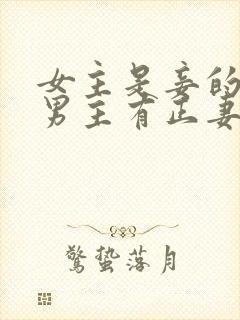 女主是妾的
男主有正妻
驚蟄落月